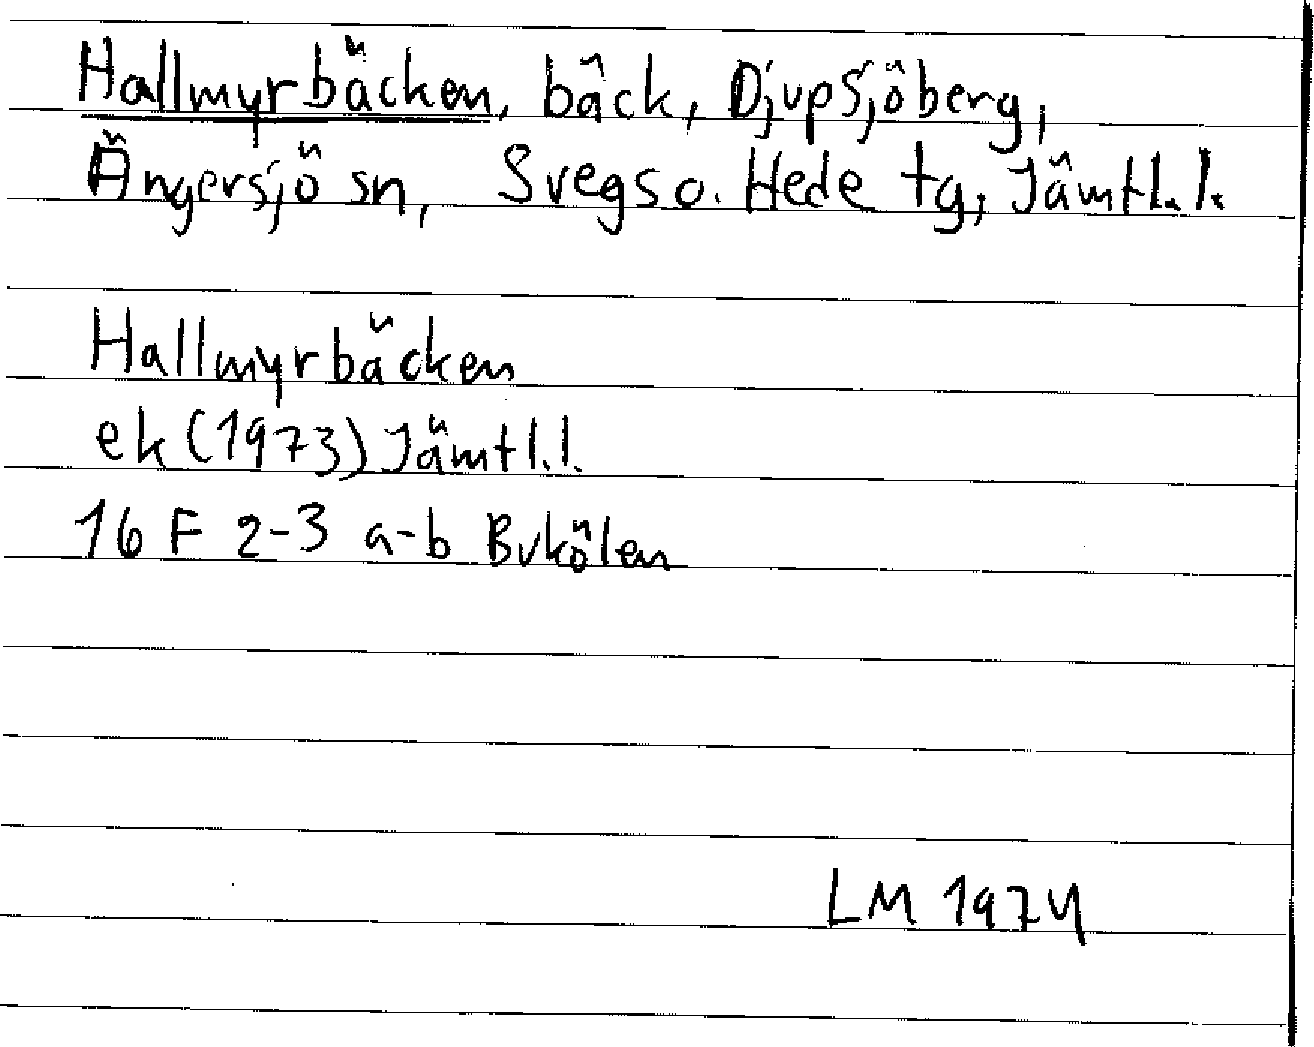 Hallmyrbäcken, bäck, Djupsjöberg,
Ängersjö sn, Svegs o. Hede tg, Jämtl.l.
Hallmyrbäcken
ek (1973) Jämtl.l.
16 F 2-3 a-b Bukölen
LM 1974